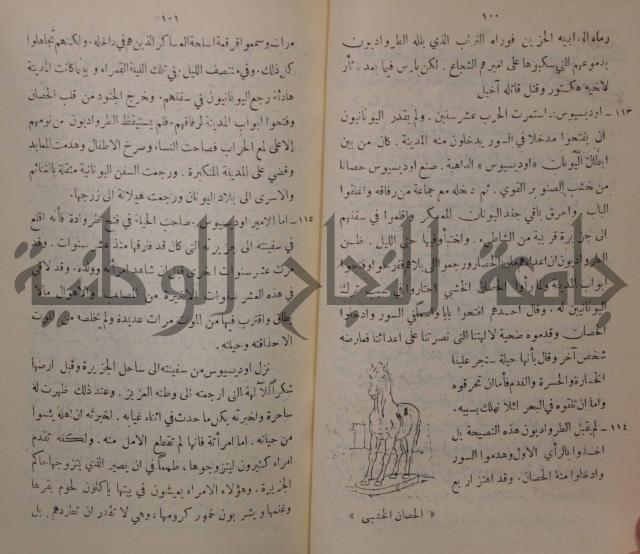 ١٠٠
رماه الى ابيه الحزين فوراه التراب الذي بلله الطرواديون
بدموعهم التي سكبوها على اميرهم الشجاع. لكن بارس فيما بعد، ثأر
لاخيه هكتور وقتل قاتله أخيل
١١٣ — اوديسيوس: — استمرت الحرب عشر سنين. ولم يقدر اليونانيون
ان يفتحوا مدخلا في السور يدخلون منه المدينة. كان من بين
ابطال اليونان «اوديسيوس» الداهية. صنع اوديسيوس حصانا
من خشب الصنوبر القوي. ثم دخله مع جماعة من رفاقه واغلقوا
الباب. واحرق باقي جند اليونان المعسكر واقلعوا في سفنهم
الى جزيرة قريبة من الشاطئ. واختبأوا فيها حتى الليل. ظن
الطرواديون ان اعداءهم الحصار ورجعوا الى بلادهم ففرحوا وفتحوا
ابواب المدينة الحصان الخشبي احتاروا في سبب ترك
اليونانيين له. وقال احدهم افتحوا بابا واسعا في السور وادخلوا
الحصان وقدموه ضحية لالهتنا التي نصرتنا على اعدائنا فعارضه
شخص آخر وقال بأنها حيلة ستجر علينا
الخسارة والحسرة والندم فاما ان تحرقوه
واما ان تلقوه في البحر لئلا نهلك بسببه.
١١٤ — لم يقبل الطرواديون هذه النصيحة بل
اخذوا بالرأي الاول وهدموا السور
وادخلوا منه الحصان. وقد اهتز اربع
« الحصان الخشبي »
١٠١
مرات وسمعوا قرقعة اسلحة العساكر الذين هم في داخله. ولكنهم تجاهلوا
كل ذلك. وفي منتصف الليل، في تلك الليلة القمراء وبينما كانت المدينة
هادئة رجع اليونانيون في سفنهم. وخرج الجنود من قلب الحصان
وفتحوا ابواب المدينة لرفاقهم. فلم يستيقظ الطرواديون من نومهم
الا على لمع الحراب فصاحت النساء وصرخ الاطفال وهدمت المعابد
وقضي على المدينة المتكبرة. ورجعت السفن اليونانية مثقلة بالغنائم
والاسرى الى بلاد اليونان ورجعت هيلانة الى زوجها.
١١٥ — اما الامير اوديسيوس، صاحب الحيلة في فتح طروادة فأنه اقلع
في سفينته الى جزيرته التي كان قد فارقها منذ عشر سنوات. وقد
مرت عشر سنوات اخرى قبل ان شاهد امرأته وولده. وقد لاقى
في هذه العشر سنوات الاخيرة من المصاعب والاهوال مالا
يطاق واقترب فيها من الموت مرات عديدة ولم يخلصه من الموت
الا حذاقته وحيلته.
نزل اوديسيوس من سفينته الى ساحل الجزيرة وقبل ارضها
شكراً للآلهة التي ارجعته الى وطنه العزيز. وعند ذلك ظهرت له
ساحرة واخبرته بكل ما حدث في اثناء غيابه. اخبرته ان اهله يئسوا
من حياته. اما امرأته فانها لم تقطع الامل منه. ولكنه تقدم
امراء كثيرون ليتزوجوها، طمعاً في ان يصير الذي يتزوجها حاكم
الجزيرة. وهؤلاء الامراء يعيشون في بيتها يأكلون لحوم بقرها
وغنمها ويشربون خمور كرومها، وهي لا تقدر ان تطردهم. بل
جامعة النجاح الوطنية